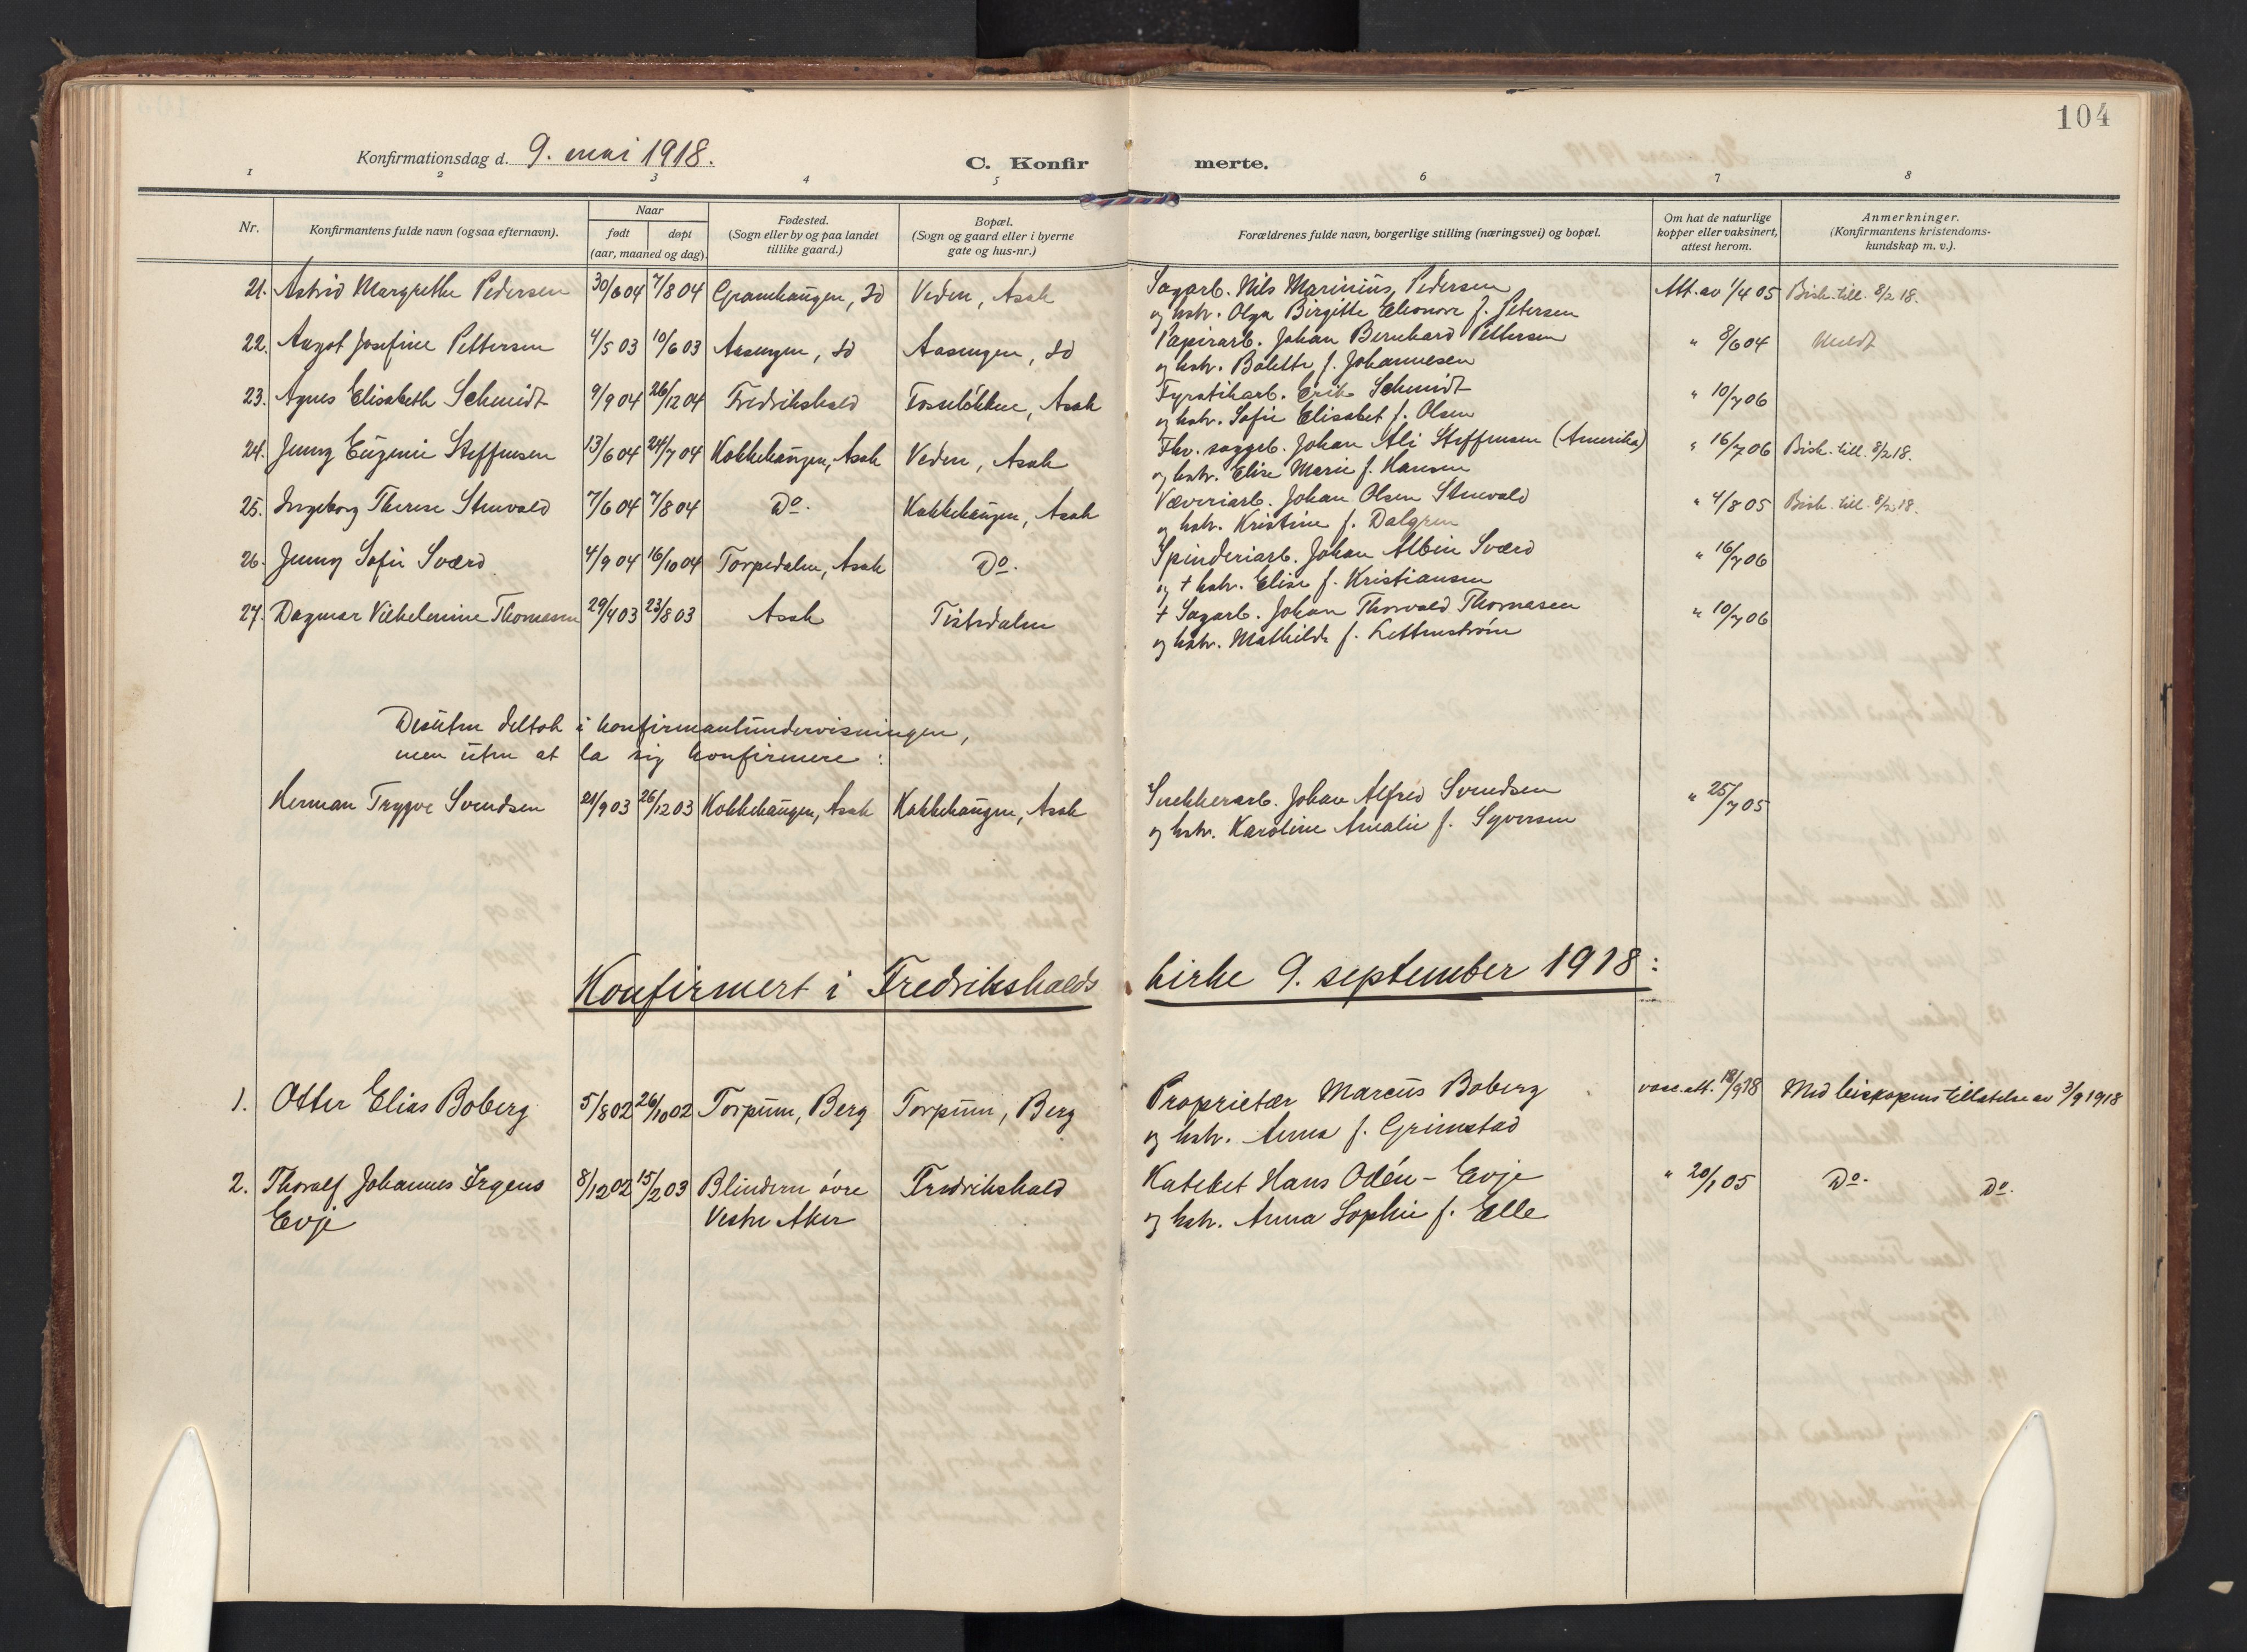 104
Konfirmationsdag d. 9. mai 1918.
C. Konfirmerte.
1 2 3 4 5 6 7 8
Nr.
Konfirmantens fulde navn (ogsaa efternavn).
Naar
født døpt
(aar, maaned og dag).
Fødested.
(Sogn eller by og paa landet
tillike gaard.)
Bopæl.
(Sogn og gaard eller i byerne
gate og hus-nr.)
Forældrenes fulde navn, borgerlige stilling (næringsvei) og bopæl.
Om hat de naturlige
kopper eller vaksinert,
attest herom.
Anmerkninger.
(Konfirmantens kristendoms-
kundskap m. v.).
21. Astrid Margrethe Pedersen 30/6 04 7/8 04 Granehaugen, Id Veden, Asak Sagarb. Nils Marinius Pedersen Att. av 1/4 05 Bisk. till. 8/2 18.
og hstr. Olga Birgitte Eleonore f. Petersen
22. Aagot Josefine Pettersen 4/5 03 10/6 03 Aasengen, Id Aasengen, Id Papirarb. Johan Bernhard Pettersen " 8/6 04 Meldt
og hstr. Bolette f. Johannesen
23. Agnes Elisabeth Schmidt 9/9 04 26/12 04 Fredrikshald Fosseløkken, Asak Fyrstikarb. Erik Schmidt " 10/7 06
og hstr. Sofie Elisabet f. Olsen
24. Jenny Eugenie Steffensen 13/6 04 24/7 04 Kokkehaugen, Asak Veden, Asak Fhv. saggeb. Johan Ali Steffensen (Amerika) " 16/7 06 Bisk. till. 8/2 18.
og hstr. Elise Marie f. Hansen
25. Ingeborg Therese Stenvald 7/6 04 7/8 04 Do. Kokkehaugen, Asak Væveriarb. Johan Olsen Stenvald " 4/8 05 Bisk. till. 8/2 18.
og hstr. Kristine f. Dalgren
26. Jenny Sofie Sværd 4/9 04 16/10 04 Torpedalen, Asak Do. Spinderiarb. Johan Albin Sværd " 16/7 06
og † hstr. Elise f. Kristiansen
27. Dagmar Vilhelmine Thomasen 29/4 03 23/8 03 Asak Tistedalen † Sagarb. Johan Thorvald Thomasen " 10/7 06
og hstr. Mathilde f. Zetterstrøm
Desuten deltok i konfirmantundervisningen,
men uten at la sig konfirmere :
Herman Trygve Svendsen 21/9 03 26/12 03 Kokkehaugen, Asak Kokkehaugen, Asak Snekkerarb. Johan Alfred Svendsen " 25/7 05
og hstr. Karoline Amalie f. Syversen
Konfirmert i Fredrikshalds kirke 9. september 1918:
1. Otter Elias Boberg 5/8 02 26/10 02 Torpum, Berg Torpum, Berg Proprietær Marcus Boberg vacc. att. 18/9 18 Med biskopens tillatelse av 3/9 1918
og hstr. Anna f. Grimstad
2. Thoralf Johannes Irgens 8/12 02 15/2 03 Blindern øvre Fredrikshald Kateket Hans Odén-Evje " 20/1 05 Do. Do.
Evje Vestre Aker og hstr. Anna Sophie f. Elle